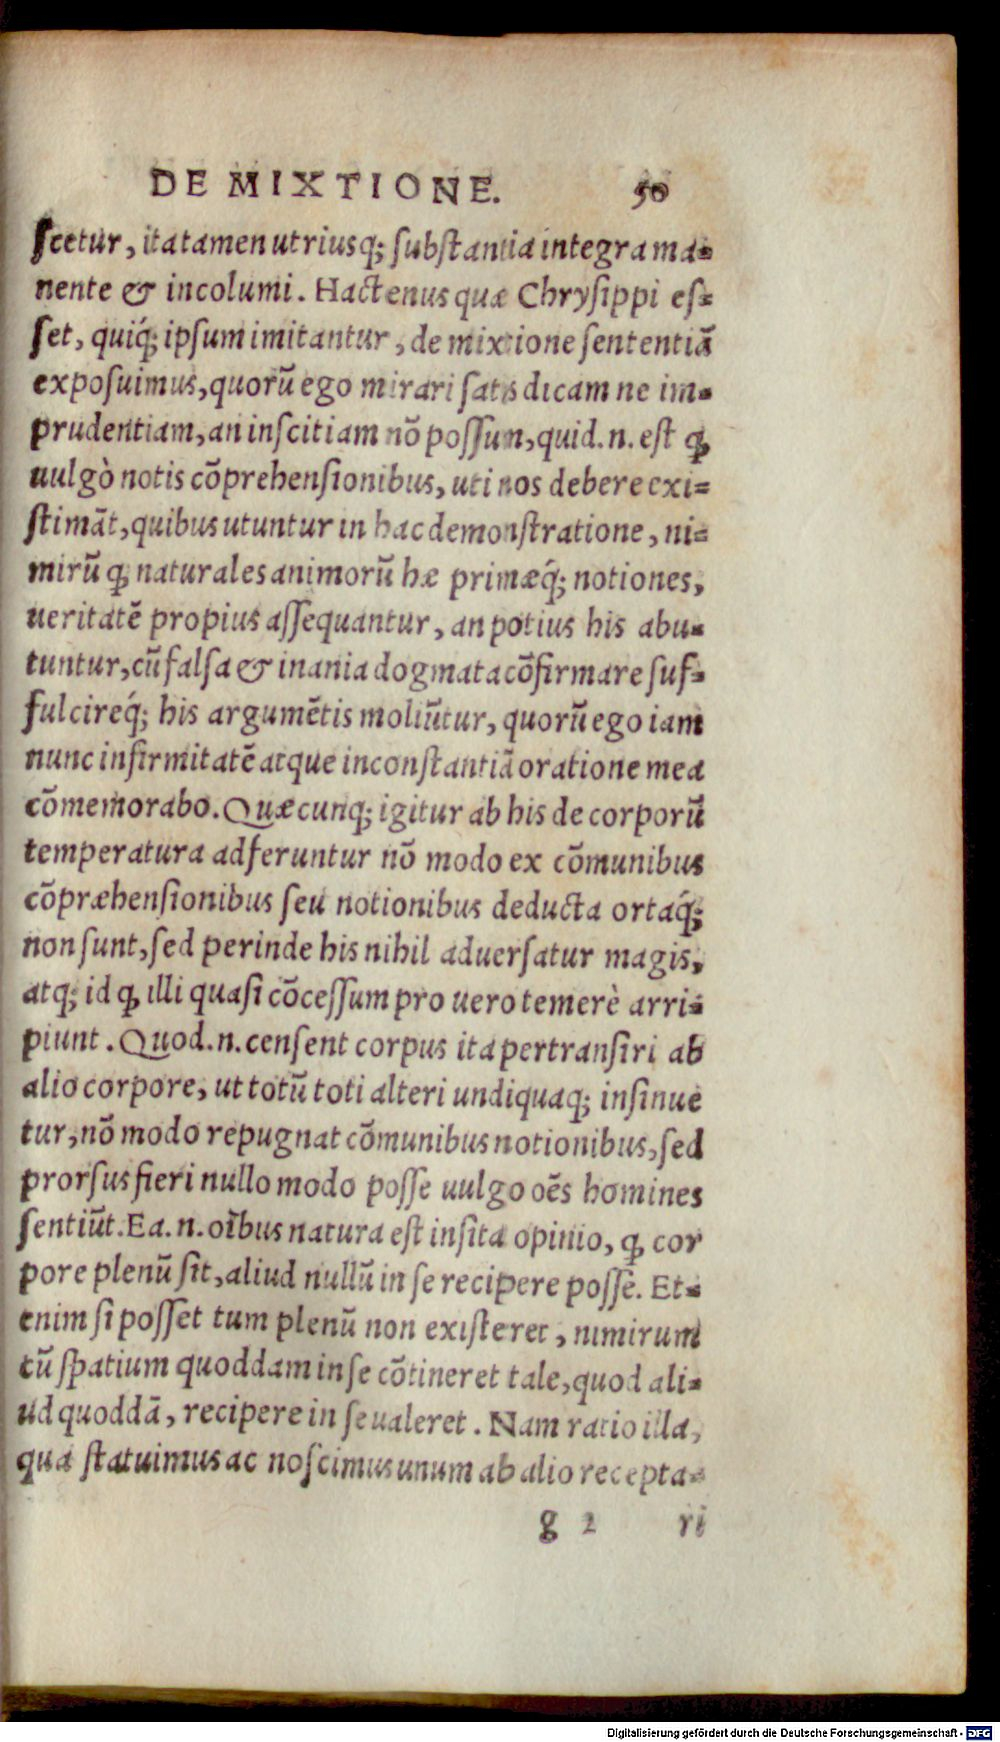 DE MIXTIONE. 50
scetur, ita tamen utriusq; substantia integra ma-
nente & incolumi. Hactenus quæ Chrysippi es-
set, quiq́; ipsum imitantur, de mixtione sententiā
exposuimus, quorū ego mirari satis dicam ne im-
prudentiam, an inscitiam nō possum, quid.n. est ꝙ
uulgò notis cōprehensionibus, uti nos debere exi-
stimāt, quibus utuntur in hac demonstratione, ni-
mirū ꝙ naturales animorū hæ primæq́; notiones,
ueritatē propius assequantur, an potius his abu-
tuntur, cū falsa & inania dogmata cōfirmare suf-
fulcireq́; his argumētis moliūtur, quorū ego iam
nunc infirmitatē atque inconstantiā oratione mea
cōmemorabo. Quæcunq; igitur ab his de corporū
temperatura adferuntur nō modo ex cōmunibus
cōpræhensionibus seu notionibus deducta ortaq́;
non sunt, sed perinde his nihil aduersatur magis,
atq; id ꝙ illi quasi cōcessum pro uero temerè arri-
piunt. Quod.n. censent corpus ita pertransiri ab
alio corpore, ut totū toti alteri undiquaq; insinue
tur, nō modo repugnat cōmunibus notionibus, sed
prorsus fieri nullo modo posse uulgo oēs homines
sentiūt. Ea.n. oībus natura est insita opinio, ꝙ cor
pore plenū sit, aliud nullū in se recipere posse. Et-
enim si posset tum plenū non existeret, nimirum
cū spatium quoddam in se cōtineret tale, quod ali-
ud quoddā, recipere in se ualeret. Nam ratio illa,
qua statuimus ac noscimus unum ab alio recepta-
g 2 ri
Digitalisierung gefördert durch die Deutsche Forschungsgemeinschaft - DFG